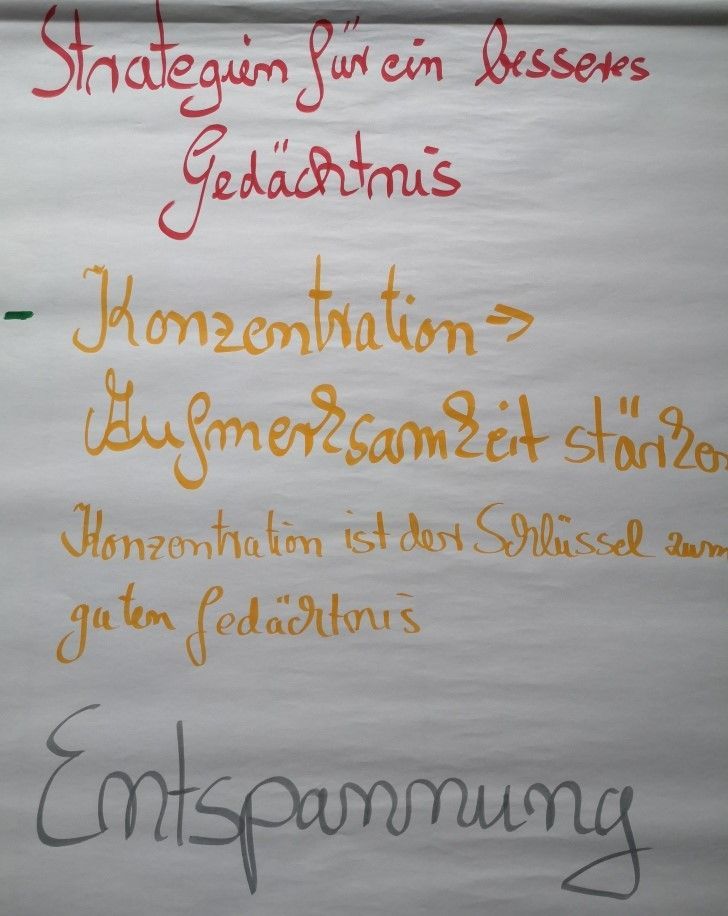 Strategien für ein besseres
Gedächtnis
- Konzentration =>
Aufmerksamkeit stärken
Konzentration ist der Schlüssel zum
guten Gedächtnis
Entspannung